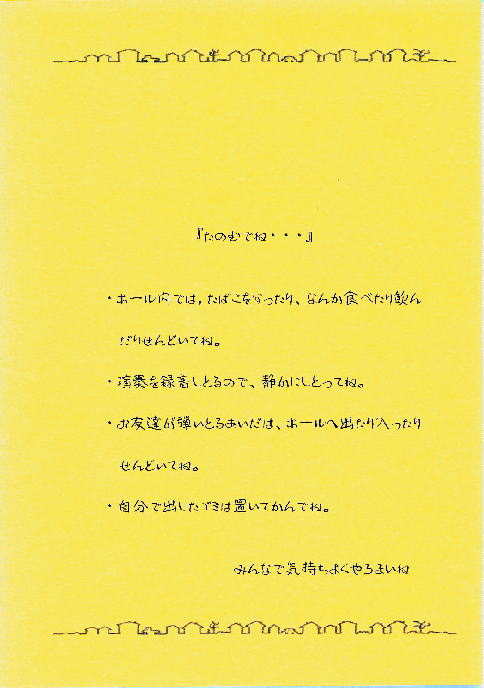 『たのむでね・・・』
・ホール内では，たばこをすったり、なんか食べたり飲ん
だりせんどいてね。
・演奏を録音しとるので、静かにしとってね。
・お友達が弾いとるあいだは、ホールへ出たり入ったり
せんどいてね。
・自分で出したゴミは置いてかんでね。
みんなで気持ちよくやろまいね